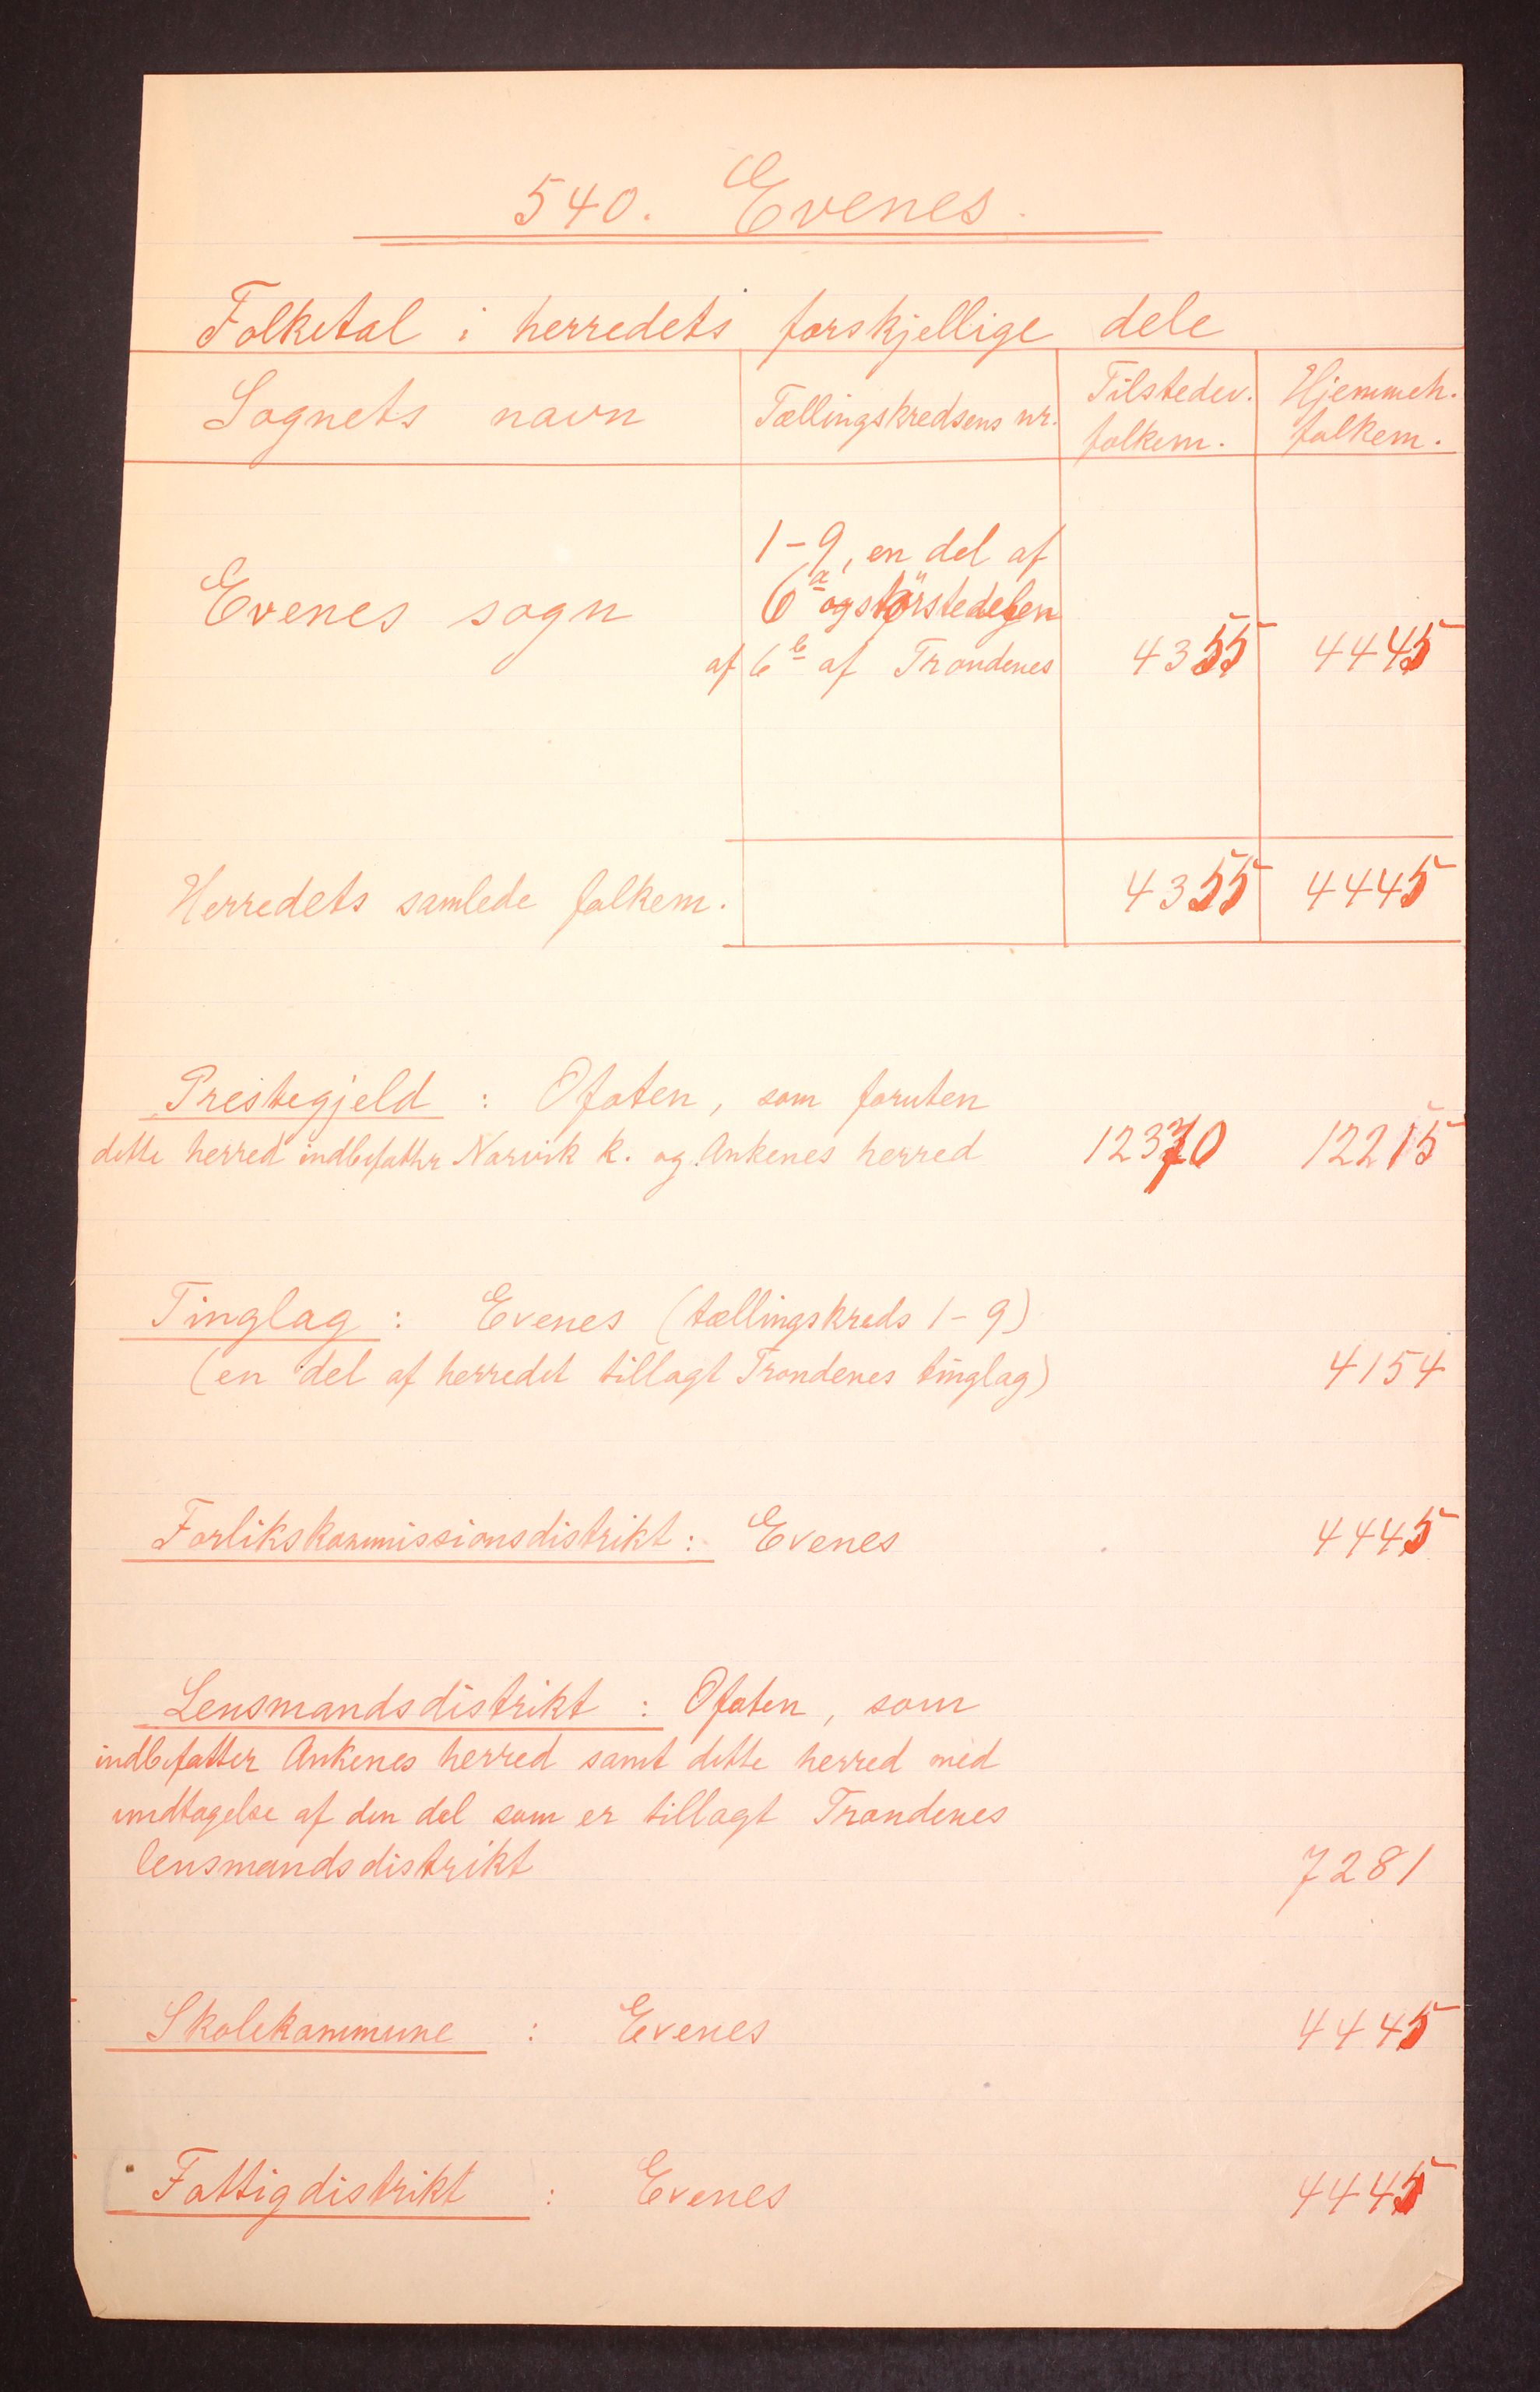 540. Evenes.
Folketal i herredets forskjellige dele
Sognets navn Tællingskredsens nr. Tilstedev. folkem. Hjemmeh. folkem.
1-9, en del af
Evenes sogn 6a og störstedelen
af 6b af Trondenes 4355 4445
Herredets samlede folkem. 4355 4445
Prestegjeld : Ofoten, som foruten
dette herred indbefatter Narvik k. og Ankenes herred 12370 12215
Tinglag : Evenes (tællingskreds 1-9)
(en del af herredet tillagt Trondenes tinglag) 4154
Forlikskommissionsdistrikt: Evenes 4445
Lensmandsdistrikt : Ofoten, som
indbefatter Ankenes herred samt dette herred med
undtagelse af den del som er tillagt Trondenes
lensmandsdistrikt 7281
Skolekommune : Evenes 4445
Fattigdistrikt : Evenes 4445